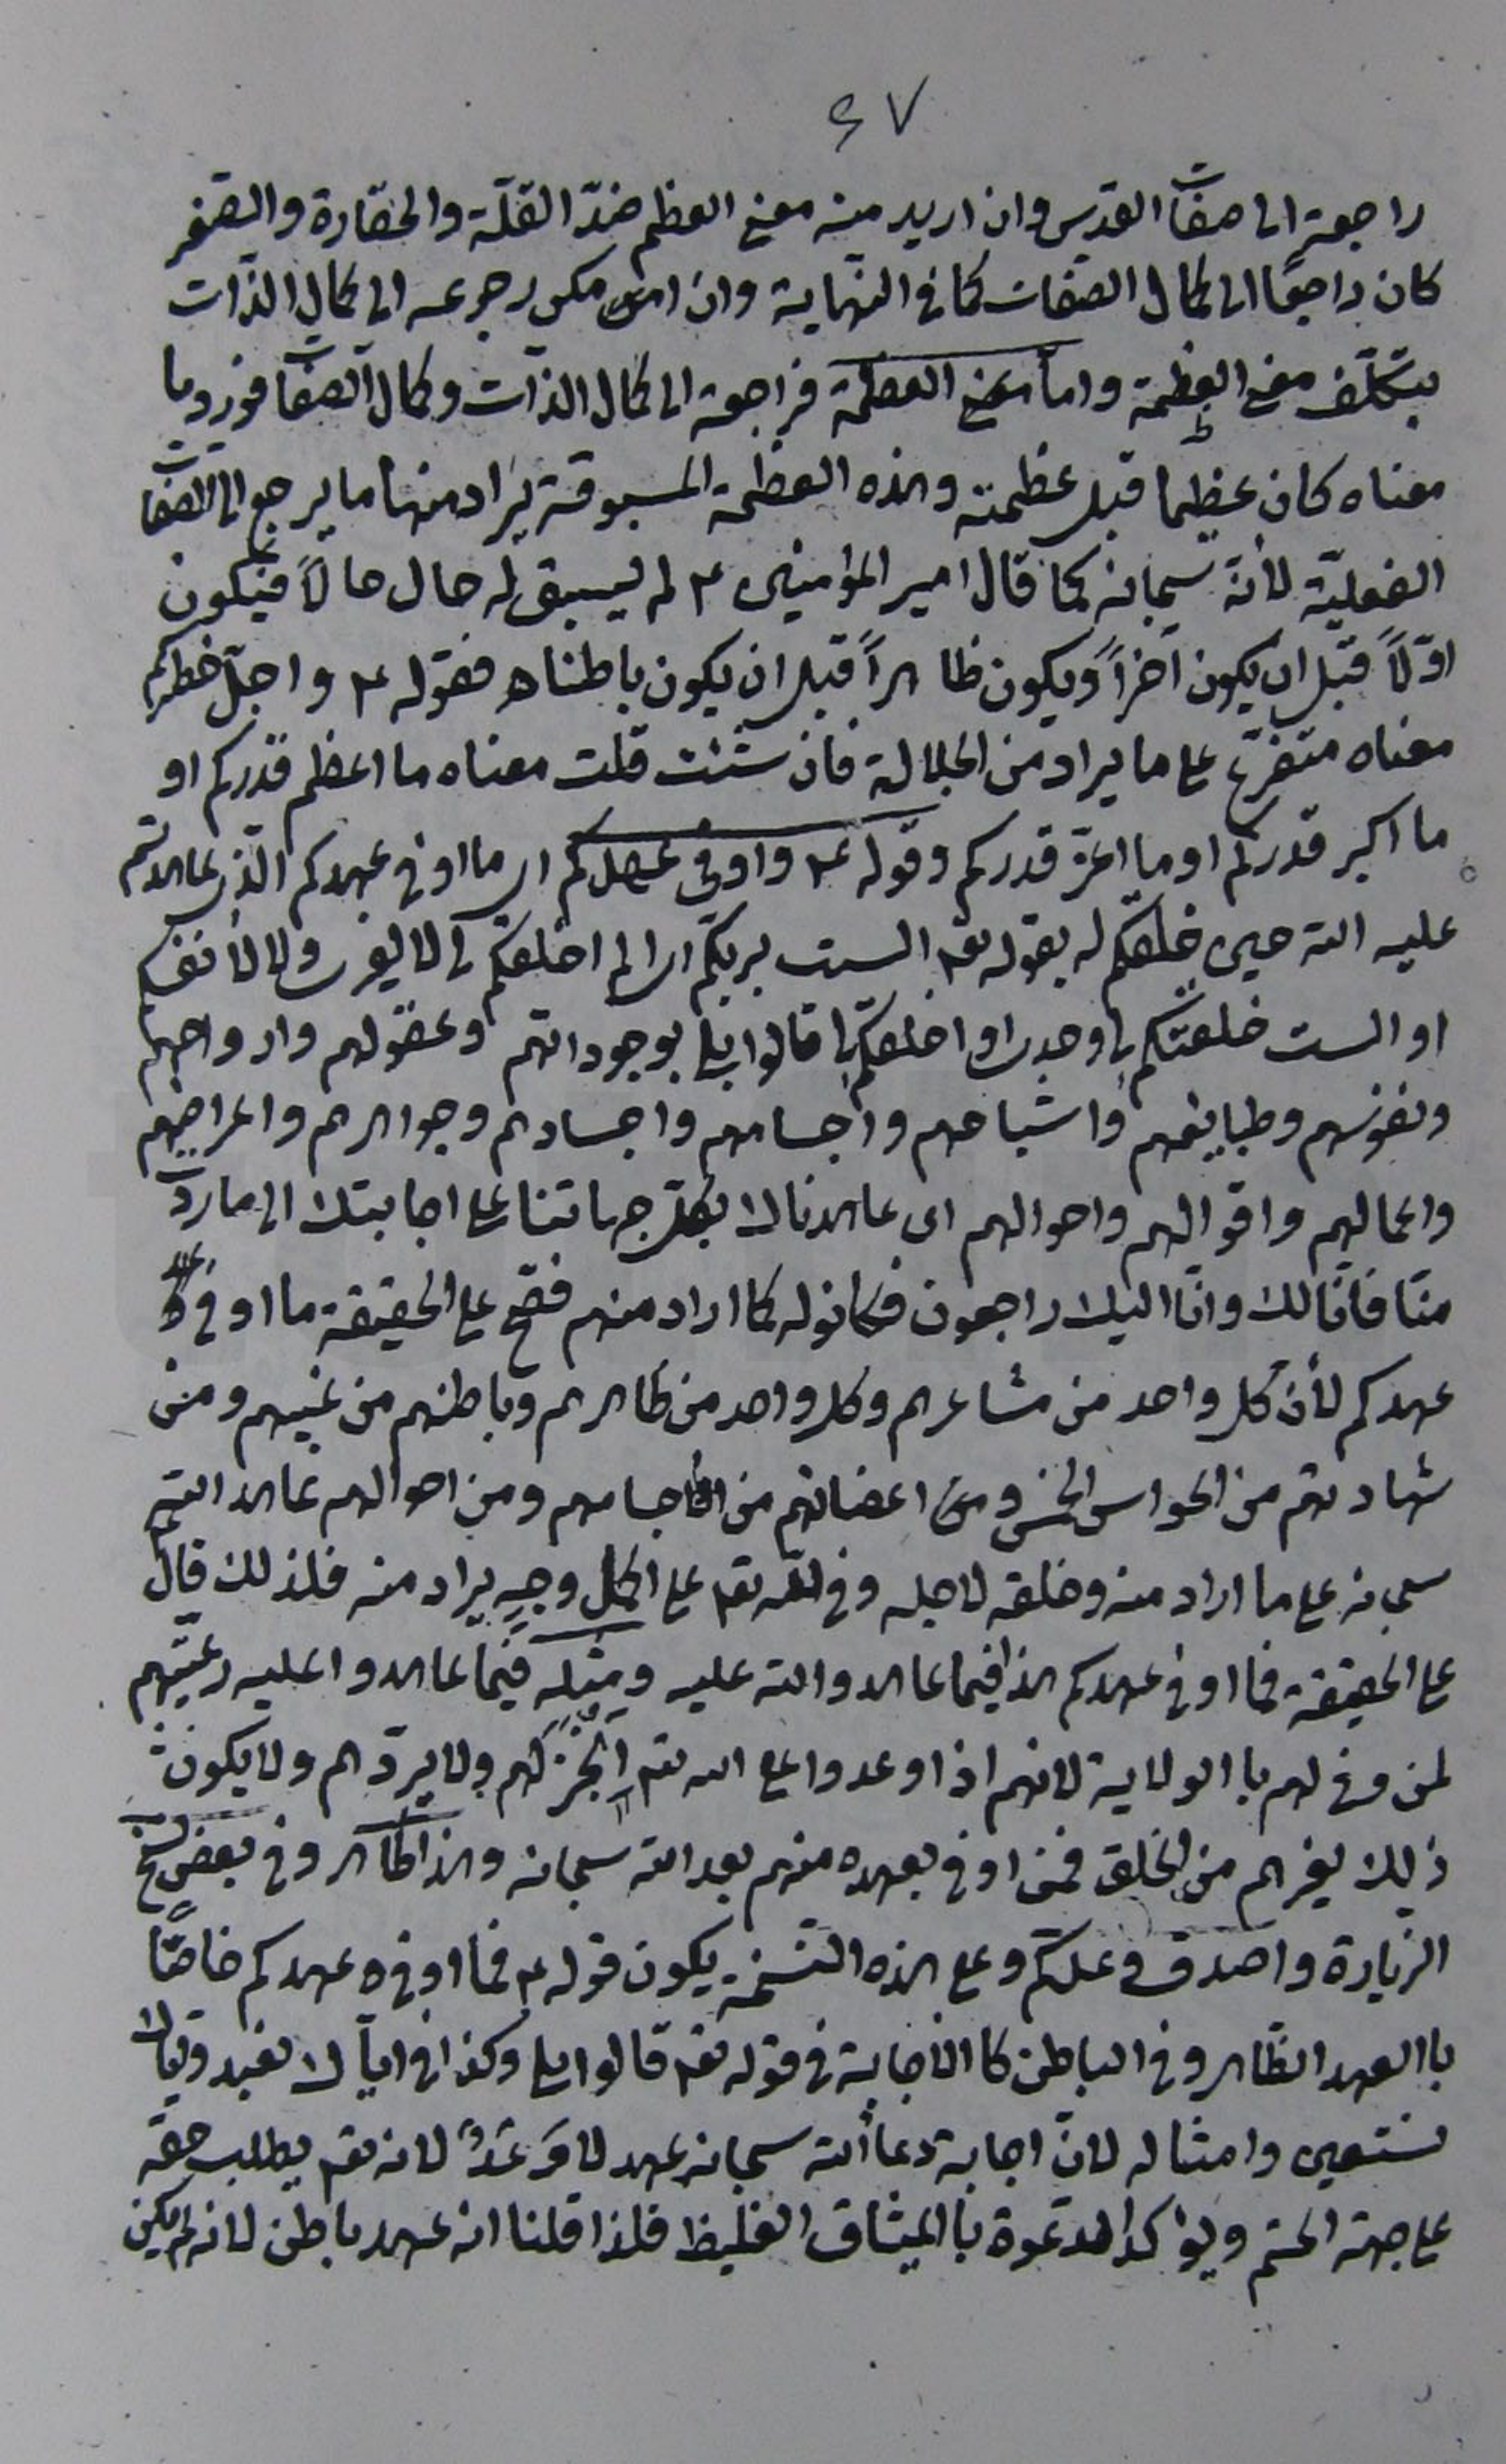 ٤٧
راجعة الى صفات القدس وان اريد منه معنى العظم ضدّ القلّة والحقارة والصّغر
كان راجعًا الى كمال الصّفات كما في النّهاية وان امكن رجوعه الى كمال الذّات
بتكلّف معنى العظمة وامّا معنى العظمة فراجعة الى كمال الذّات وكمال الصّفات
معناه كان عظيما قبل عظمته وهذه العظمة المسبوقة يُراد منها ما يرجع الى الصّفات
الفعليّة لأنّه سبحانه كما قال امير المؤمنين ع لم يسبق له حال حالاً فيكون
اوّلاً قبل ان يكون آخراً ويكون ظاهراً قبل ان يكون باطنا ه فقوله ع واجلّ خطركم
معناه متفرّع على ما يراد من الجلالة فان شئت قلت معناه ما اعظم قدركم او
ما اكبر قدركم او ما اعزّ قدركم وقوله ع واوفى عهدكم اى ما اوفى عهدكم الّذى عاهدتم
عليه الله حين خلقكم له بقوله تع الست بربّكم اى الم اخلقكم لى لا لغيرى ولا لأنفسكم
او الست خلقتكم لى وحدى او اخلقكم لى قالوا بلى بوجوداتهم وعقولهم وارواحهم
ونفوسهم وطبايعهم واشباحهم واجسامهم واجسادهم وجواهرهم واعراضهم
واعمالهم واقوالهم واحوالهم اى عاهدناك بكلّ جهاتنا على اجابتك الى ما اردت
منّا فأنّا لك وانّا اليك راجعون فكانوا له كما اراد منهم فصحّ على الحقيقة ما اوفى
عهدكم لأن كل واحد من مشاعرهم وكل واحد من ظاهرهم وباطنهم من غيبهم ومن
شهادتهم من الحواس الخمس ومن اعضائهم من اجسامهم ومن احوالهم عاهد الله
سبحانه على ما اراد منه وخلقه لاجله وفى لله تع على اكمل وجهٍ يراد منه فلذلك قال
على الحقيقة فما اوفى عهدكم هذا فيما عاهدوا الله عليه ومثله فيما عاهدوا عليه رعيّتهم
لمن وفى لهم بالولاية لانهم اذا وعدوا على الله تع انجز لهم ولا يردّهم ولا يكون
ذلك لغيرهم من الخلق فمن اوفى بعهده منهم بعد الله سبحانه وهذا ظاهر وفى بعض نسخ
الزيارة واصدق وعدكم وعلى هذه النّسخة يكون قوله ع فما اوفى عهدكم خاصّا
بالعهد الظّاهر وفى الباطن كالاجابة فى قوله تع قالوا بلى وكذا فى ايّاك نعبد وايّاك
نستعين وامثاله لانّ اجابة دعاء الله سبحانه عهد لا وَعْدٌ لانه تع يطلب حقّه
على جهة الحتم ويؤكّد الدّعوة بالميثاق الغليظ فلذا قلنا انه عهد باطن لانه لم يكن